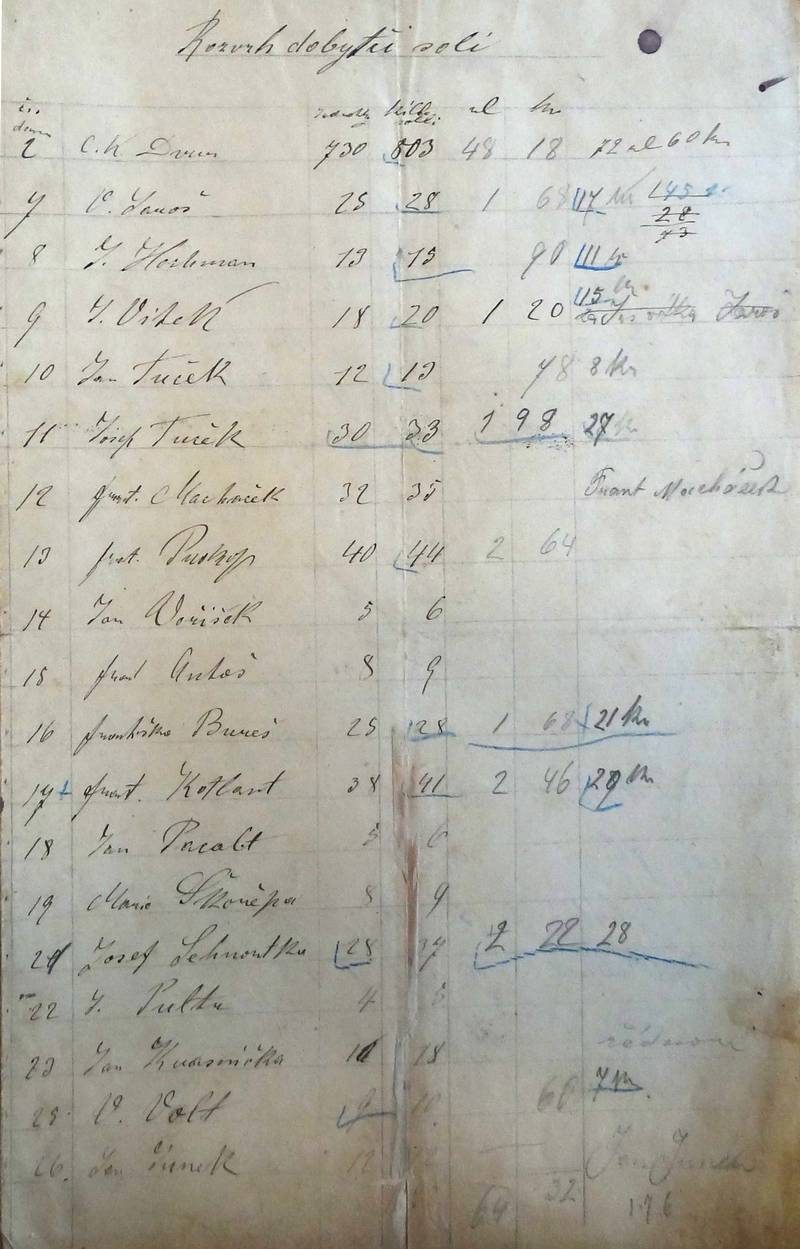 Rozvrh dobytčí soli
čís. domu zl kr
2 C. K. Dvur 730 803 48 18 72 zl 60 kr
7 V. Jaroš 25 28 1 68 17 kr 145
28
73
8 J. Hochman 13 15 90 11 kr
9 J. Vítek 18 20 1 20 15 kr
10 Jan Tuček 12 13 78 8 kr
11 Josef Tuček 30 33 1 98 27 kr
12 frant. Macháček 32 35 Frant Macháček
13 frat. Prokop 40 44 2 64
14 Jan Voříšek 5 6
15 frant Antoš 8 9
16 Františka Bureš 25 28 1 68 21 kr
17 frant. Kotlant 38 41 2 46 29 kr
18 Jan Pacalt 5 6
19 Marie Škořepa 8 9
21 Josef Sehnoutka 28 37 2 22 28
22 J. Pulta 4 5
23 Jan Kvasnička 18
25 V. Volt 9 10 60 7 kr.
26. Jan Junek 12 Jan Junek
64 32 176